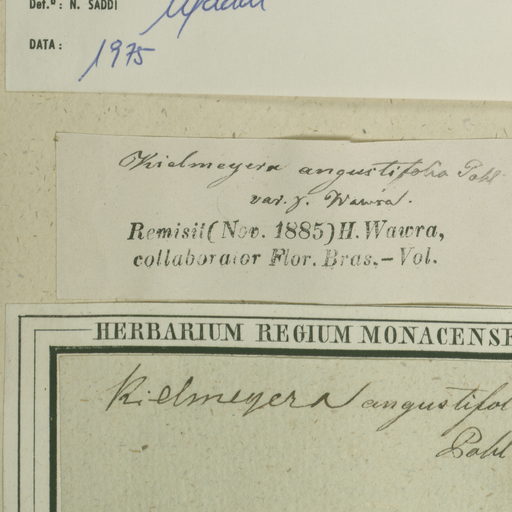 Det.º: N. SADDI
DATA: 1975
Kielmeyera angustifolia Pohl
var. γ. Wawra.
Remisit (Nov. 1885) H. Wawra,
collaborator Flor. Bras. – Vol.
HERBARIUM REGIUM MONACENSE
Kielmeyera angustifol
Pohl